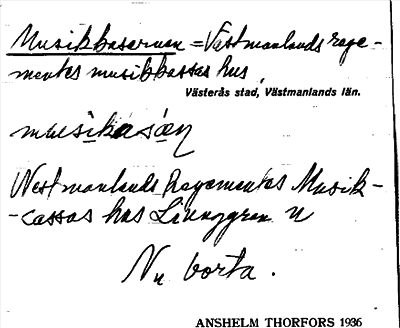 Musikkasernen = Västmanlands rege-
mentes musikkassas hus
Västerås stad, Västmanlands län.
musikasæṇ
Westmanlands Regementes Musik-
-cassas hus Liunggren U
Nu borta.
ANSHELM THORFORS 1936